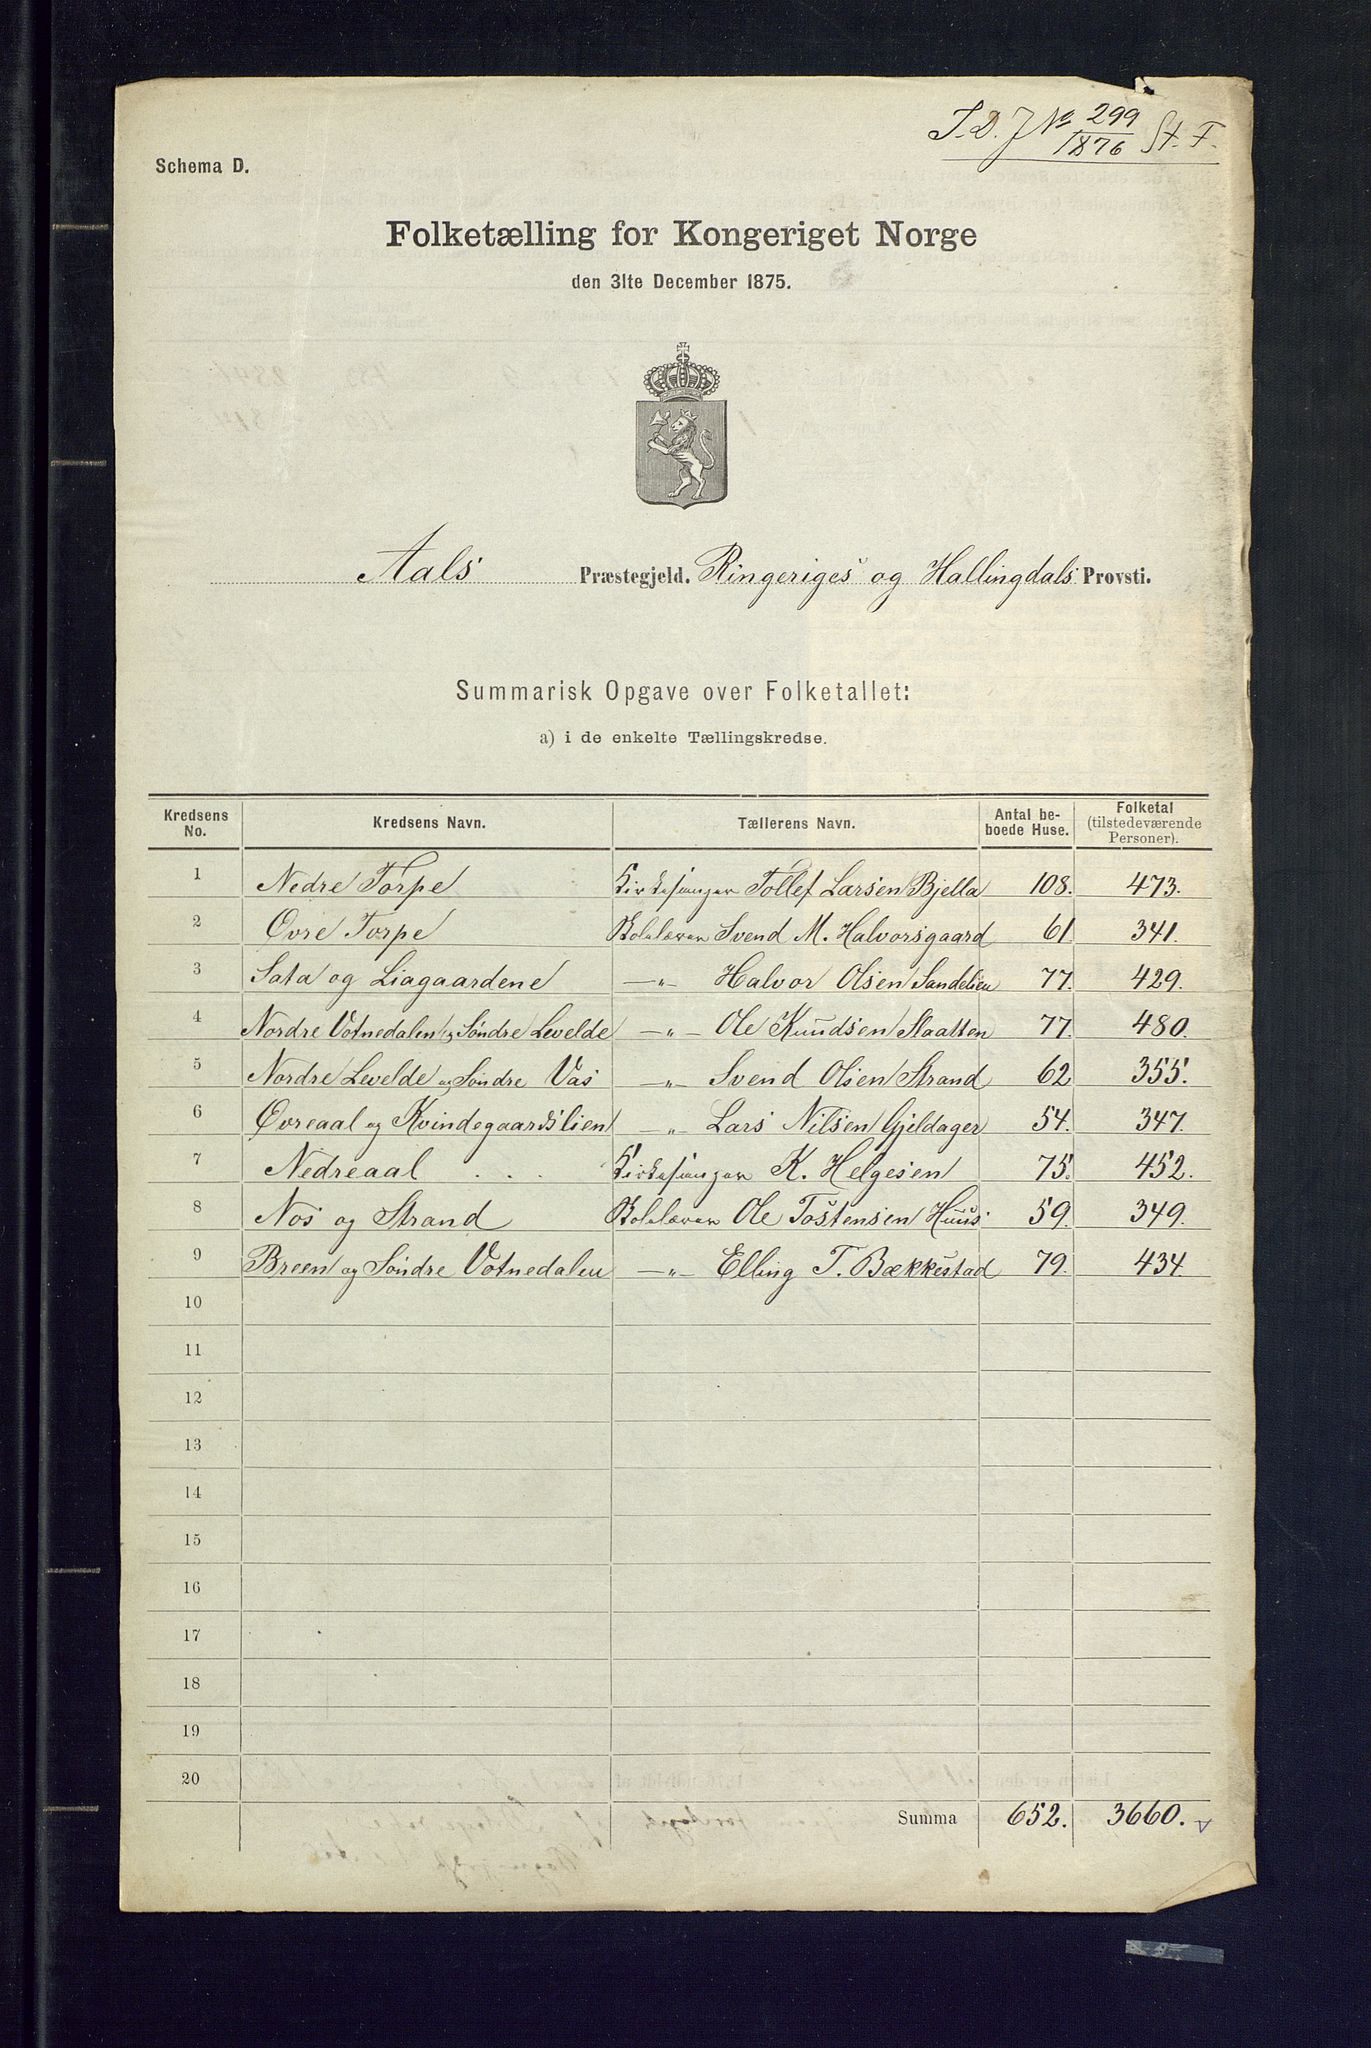 T.D. J No 299/1876 St. F.
Schema D.
Folketælling for Kongeriget Norge
den 31te December 1875.
Aals Præstegjeld. Ringeriges og Hallingdals Provsti.
Summarisk Opgave over Folketallet:
a) i de enkelte Tællingskredse.
Kredsens No. Kredsens Navn. Tællerens Navn. Antal beboede Huse. Folketal (tilstedeværende Personer).
1 Nedre Torpe Kirkesanger Tollef Larsen Bjella 108. 473.
2 Øvre Torpe Skolelærer Svend M. Halvorsgaard 61 341.
3 Sata og Liagaardene —„— Halvor Olsen Sandelien 77. 429.
4 Nordre Votnedalen og Søndre Levelde —„— Ole Knudsen Slaatten 77. 480.
5 Nordre Levelde og Søndre Vas —„— Svend Olsen Strand 62 355.
6 Øvreaal og Kvindegaardslien —„— Lars Nilsen Gjeldager 54. 347.
7 Nedreaal . . Kirkesanger K. Helgesen 75. 452.
8 Nos og Strand Skolelærer Ole Tostensen Huus 59. 349.
9 Breen og Søndre Votnedalen —„— Elling T. Bækkestad 79. 434.
10
11
12
13
14
15
16
17
18
19
20
Summa 652. 3660.